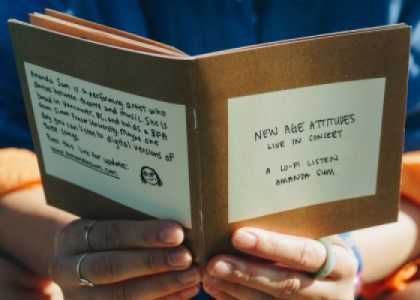 Amanda Sum is a performing artist who
dances between theatre and music. She is
based in Vancouver, BC, and holds a BFA
from Simon Fraser University. Maybe one
day you can listen to digital versions of
these songs.
Press this link for update:
www.amandasum.com
NEW AGE ATTITUDES
LIVE IN CONCERT
A LO-FI LISTEN
AMANDA SUM